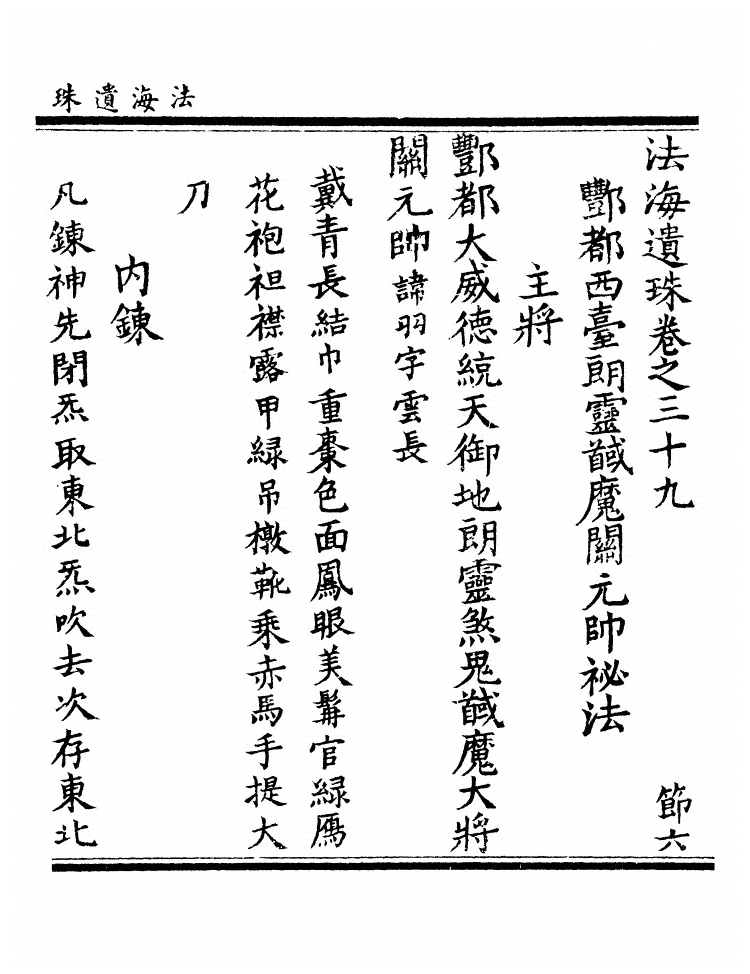 法海遺珠
法海遺珠卷之三十九　節六
酆都西臺朗靈馘魔關元帥祕法
主將
酆都大威德統天御地朗靈煞鬼馘魔大將
關元帥諱羽字雲長
戴青長結巾重棗色面鳳眼美髯官綠鴈
花袍袒襟露甲綠吊橔靴乘赤馬手提大
刀
內鍊
凡鍊神先閉炁取東北炁吹去次存東北